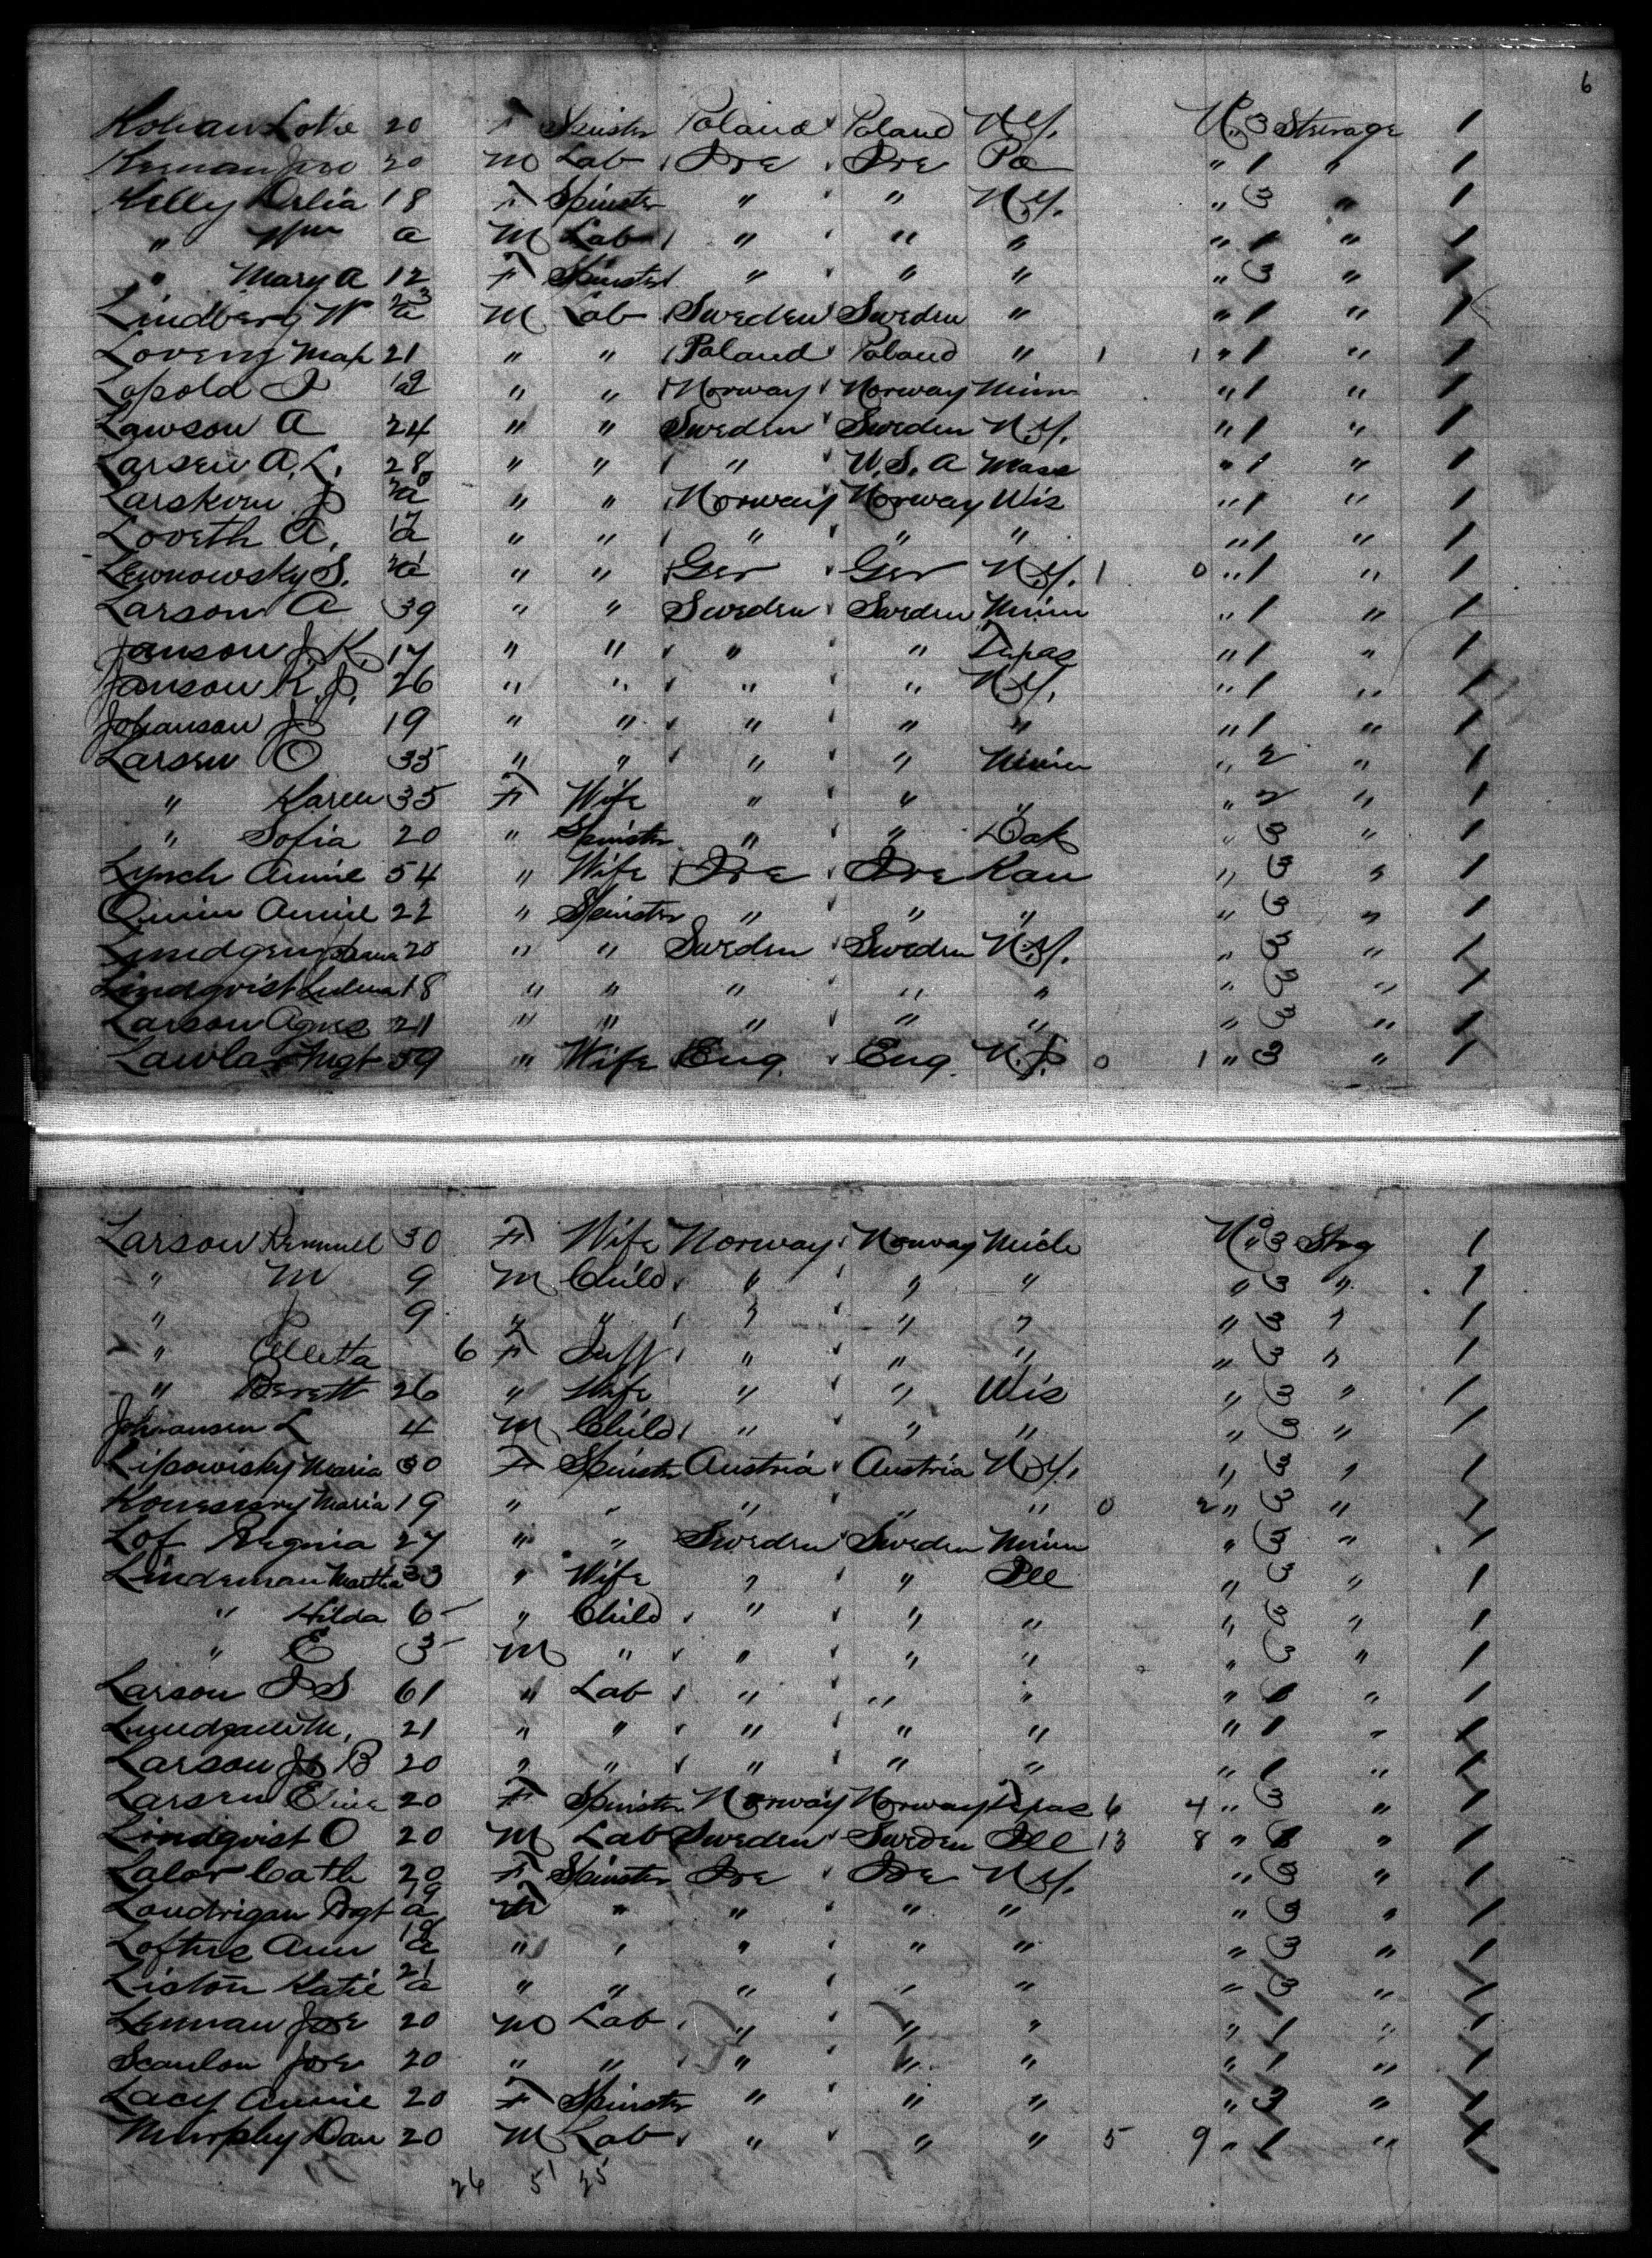 6
Kohan Lotie 20 F Spinster Poland Poland N.Y. No 3 Steerage 1
Joe 20 M Lab Ire Ire Pa " 1 " 1
Kelly Delia 18 F Spinster " " N.Y. " 3 " 1
" Wm a M Lab " " " " 1 " 1
" Mary A 12 F Spinster " " " " 3 " 1
Lindberg W 23 M Lab Sweden Sweden " " 1 " 1
Max 21 " " Poland Poland " 1 1 " 1 " 1
Lopold J 19 " " Norway Norway Minn " 1 " 1
Lawson A 24 " " Sweden Sweden N.Y. " 1 " 1
Larsen A.L. 28 " " " U.S.A Mass " 1 " 1
J " " Norway Norway Wis " 1 " 1
Loveth A. 17 " " " " " " 1 " 1
S. " " Ger Ger N.Y. 1 0 " 1 " 1
Larson A 39 " " Sweden Sweden Minn " 1 " 1
Janson J K 17 " " " " Texas " 1 " 1
Janson K. J. 26 " " " " N.Y. " 1 " 1
Johanson J 19 " " " " " " 1 " 1
Larsen O 35 " " " " Minn " 2 " 1
" Karen 35 F Wife " " " " 2 " 1
" Sofia 20 " Spinster " " Dak " 3 " 1
Lynch Annie 54 " Wife Ire Ire Kan " 3 " 1
Quinn Annie 22 " Spinster " " " " 3 " 1
20 " " Sweden Sweden N.Y. " 3 " 1
Lindqvist 18 " " " " " " 3 " 1
Larson Agnes 21 " " " " " " 3 " 1
Lawla Mgt 59 " Wife Eng. Eng. N.J. 0 1 " 3 " 1
Larson 30 F Wife Norway Norway Mich No 3 Strg 1
" M 9 M Child " " " " 3 " 1
" J 9 " " " " " " 3 " 1
" 6 F Inff " " " " 3 " 1
" Berett 26 " Wife " " Wis " 3 " 1
Johansen L 4 M Child " " " " 3 " 1
Lipowisky Maria 30 F Spinster Austria Austria N.Y. " 3 " 1
Maria 19 " " " " " 0 2 " 3 " 1
Lof Regina 27 " " Sweden Sweden Minn " 3 " 1
Lindeman Martha 33 " Wife " " Ill " 3 " 1
" Hilda 6 " Child " " " " 3 " 1
" E 3 M " " " " " 3 " 1
Larson J S 61 " Lab " " " " 1 " 1
M. 21 " " " " " " 1 " 1
Larson J B 20 " " " " " " 1 " 1
Larsen Eline 20 F Spinster Norway Norway Texas 6 4 " 3 " 1
Lindqvist O 20 M Lab Sweden Sweden Ill 13 8 " 1 " 1
Lalor Cath 20 F Spinster Ire Ire N.Y. " 3 " 1
Londrigan Brgt 19 " " " " " 3 " 1
Loftus Ann 18 " " " " " " 3 " 1
Liston Katie 21 " " " " " " 3 " 1
Lennan Joe 20 M Lab " " " " 1 " 1
Scanlon Joe 20 " " " " " " 1 " 1
Lacy Annie 20 F Spinster " " " " 3 " 1
Murphy Dan 20 M Lab " " " 5 9 " 1 " 1
26 51 25